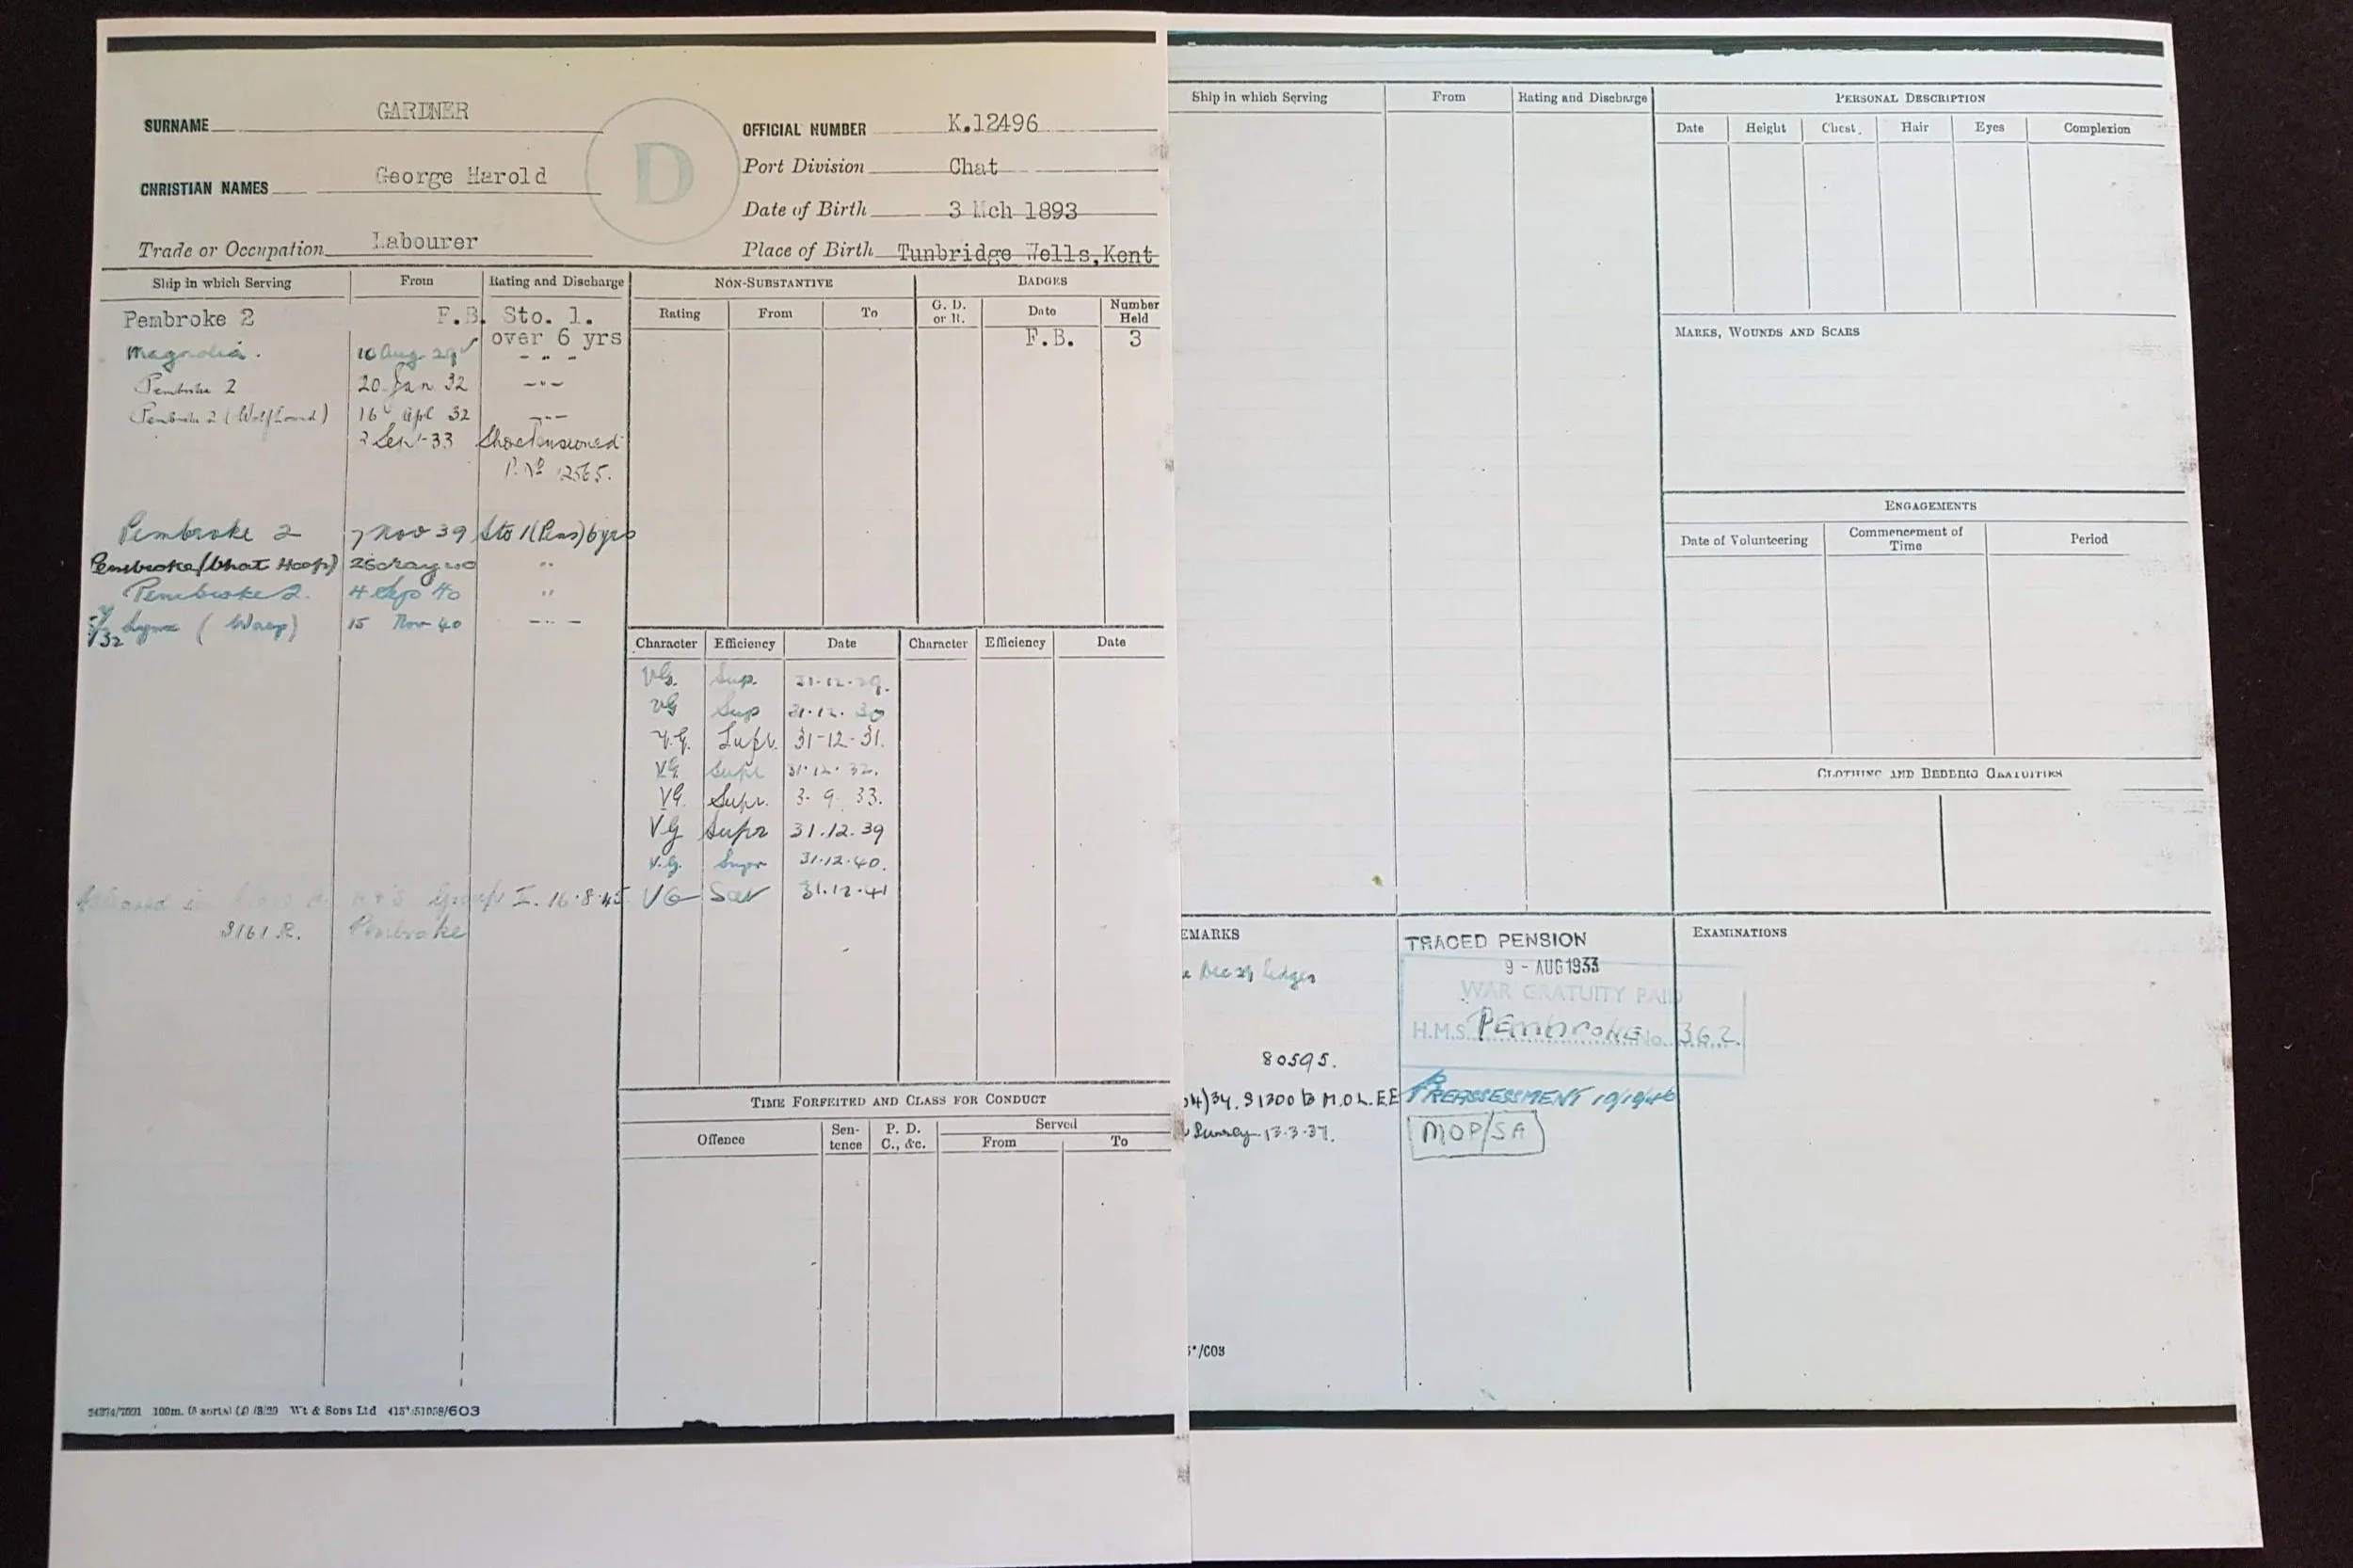 SURNAME GARDNER
OFFICIAL NUMBER K.12496
CHRISTIAN NAMES George Harold
D
Port Division Chat
Date of Birth 3 Mch 1893
Trade or Occupation Labourer
Place of Birth Tunbridge Wells, Kent
Ship in which Serving From Rating and Discharge
Pembroke 2 F.B. Sto. 1. over 6 yrs
Magnolia. 10 Aug 29 - " -
Pembroke 2 20 Jan 32 - " -
Pembroke 2 (Wolfhound) 16 Apl 32 - " -
2 Sep 33 Shore Pensioned
P. No 12565.
Pembroke 2 7 Nov 39 Sto 1 (Pens) 6 yrs
Pembroke (Chat Hosp) 26 May 40 "
Pembroke 2. 4 Sep 40 "
Lynx (Wasp) 15 Nov 40 - " -
Released in Class A. Group I. 16.8.45
Pembroke
NON-SUBSTANTIVE
Rating From To
BADGES
G. D. or R. Date Number Held
F.B. 3
Character Efficiency Date Character Efficiency Date
VG. Sup. 31.12.29.
VG Sup 31.12.30
V.G. Supr. 31-12-31.
VG. Supr 31.12.32.
VG. Supr. 3. 9. 33.
VG Supr 31.12.39
V.G. Supr 31.12.40.
VG Sat 31.12.41
TIME FORFEITED AND CLASS FOR CONDUCT
Offence Sentence P. D. C., &c. Served
From To
Wt & Sons Ltd
Ship in which Serving From Rating and Discharge
PERSONAL DESCRIPTION
Date Height Chest. Hair Eyes Complexion
MARKS, WOUNDS AND SCARS
ENGAGEMENTS
Date of Volunteering Commencement of Time Period
CLOTHING AND BEDDING GRATUITIES
EMARKS
Dec 29 ledger
80595.
34. 91200 B M.O.L.EE
Surrey 13.3.37.
TRACED PENSION
9 - AUG 1933
WAR GRATUITY PAID
H.M.S. Pembroke No. 362.
REASSESSMENT 10/10/46
MOP/SA
EXAMINATIONS